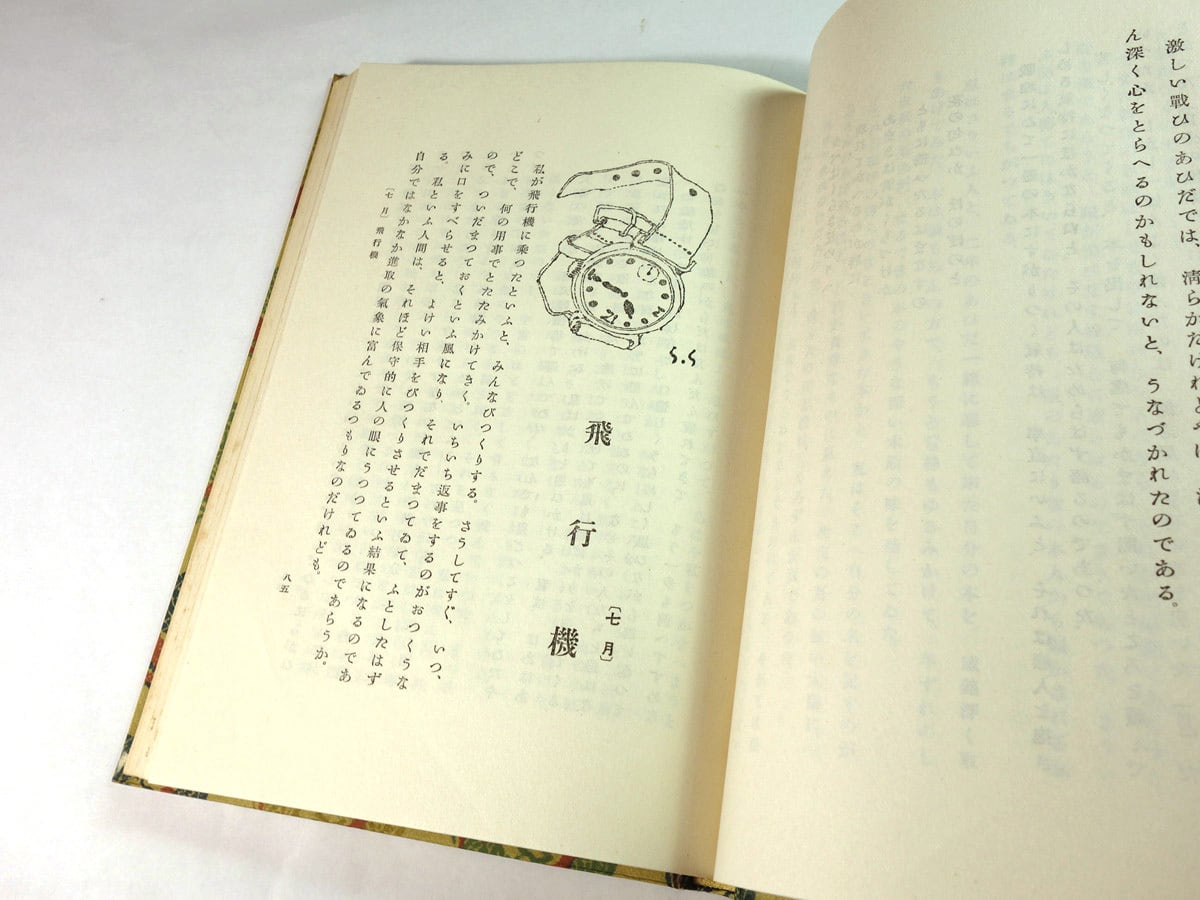 激しい戰ひのあひだでは、清らかだけれどやは
ん深く心をとらへるのかもしれないと、うなづかれたのである。
12
S.S
飛行機
〔七月〕
私が飛行機に乘つたといふと、みんなびつくりする。さうしてすぐ、いつ、
どこで、何の用事でとたたみかけてきく。いちいち返事をするのがおつくうな
ので、ついだまつておくといふ風になり、それでだまつてゐて、ふとしたはず
みに口をすべらせると、よけい相手をびつくりさせるといふ結果になるのであ
る。私といふ人間は、それほど保守的に人の眼にうつつてゐるのであらうか。
自分ではなかなか進取の氣象に富んでゐるつもりなのだけれども。
〔七月〕飛行機
八五